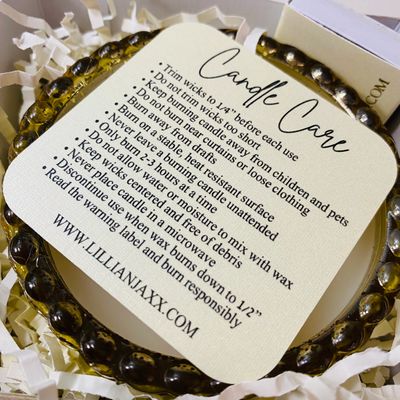 Candle Care
• Trim wicks to 1/4" before each use
• Do not trim wicks too short
• Keep burning candle away from children and pets
• Do not burn near curtains or loose clothing
• Burn away from drafts
• Never leave a burning candle unattended
• Burn on a stable, heat resistant surface
• Only burn 2-3 hours at a time
• Do not allow water or moisture to mix with wax
• Keep wicks centered and free of debris
• Never place candle in a microwave
• Discontinue use when wax burns down to 1/2"
• Read the warning label and burn responsibly
WWW.LILLIANJAXX.COM
JAXX.COM